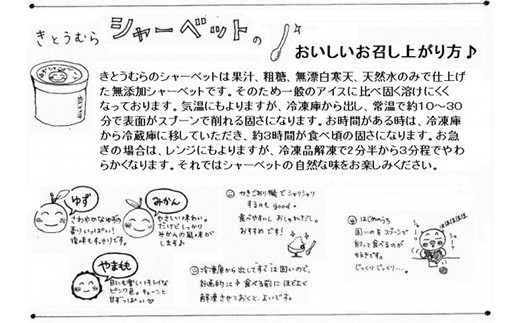 きとうむら シャーベットの
おいしいお召し上がり方♪
きとうむらのシャーベットは果汁、粗糖、無漂白寒天、天然水のみで仕上げ
た無添加シャーベットです。そのため一般のアイスに比べ固く溶けにくく
なっております。気温にもよりますが、冷凍庫から出し、常温で約10～30
分で表面がスプーンで削れる固さになります。お時間がある時は、冷凍庫
から冷蔵庫に移していただき、約3時間が食べ頃の固さになります。お急
ぎの場合は、レンジにもよりますが、冷凍品解凍で2分半から3分程でやわ
らかくなります。それではシャーベットの自然な味をお楽しみください。
ゆず
さわやかなゆずの
香りいっぱい!
後味もすっきりです。
みかん
やさしい味わい。
だけどしっかり
みかんの風味が
します♪
やまもも
目にも楽しいキレイな
ピンク色。キューンと
甘ずっぱい♡
かきごおり機でシャリシャリ
するのも good。
食べやすいし おしゃれだし。
おすすめです!
冷凍庫から出してすぐは固いので、
計画的に→食べる前にほどよく
解凍させておくと、よいです。
はじめのうち
固いのをスプーンで
削って食べるのが
好きです。
じっくり じっくり…。
ほほほほほ